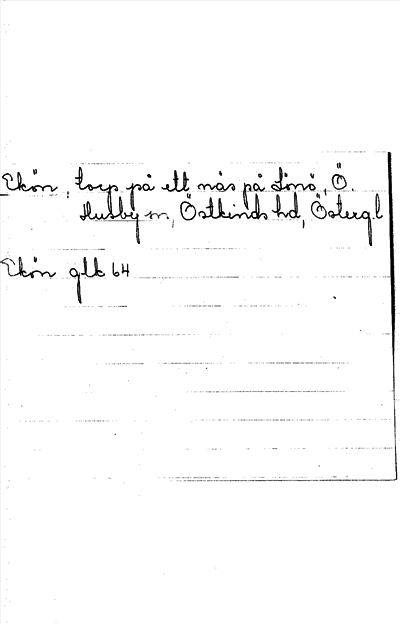 Ekön, torp på ett näs på Lönö, Ö.
Husby sn, Östkinds hd, Östergl
Ekön glk 64